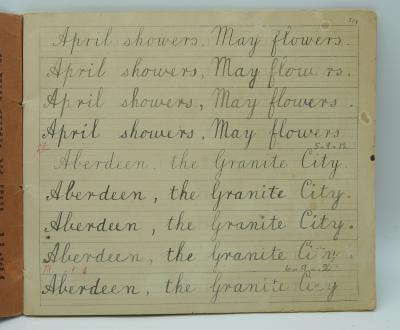 April showers. May flowers.
April showers, May flow rs.
April showers, May flowers.
April showers, May flowers
Aberdeen. the Granite City.
Aberdeen, the Granite City.
Aberdeen, the Granite City.
Aberdeen, the Granite City.
Aberdeen, the Granite City